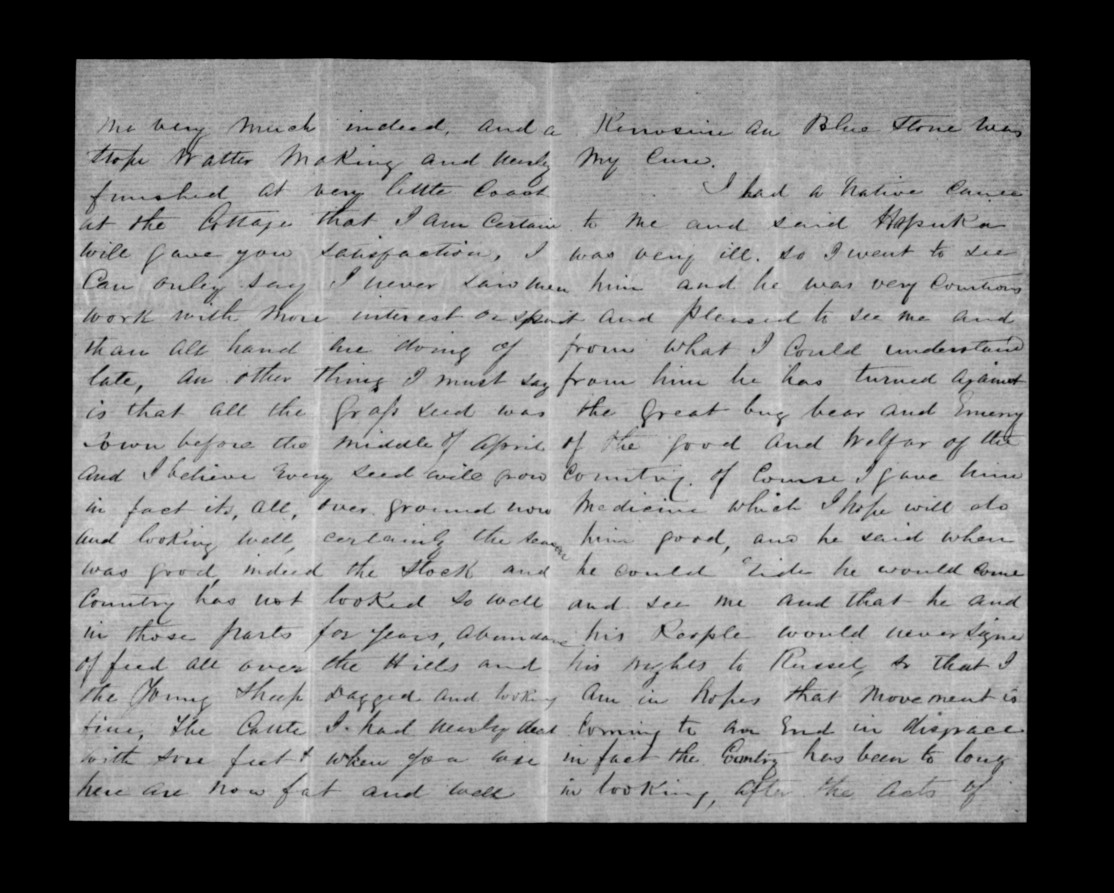 me very much indeed, and a
trope Watter Making and nearly
finished at very little Coast
at the Cottage that I am Certain
will gave you satisfaction, I
Can onley say I never saw men
work with More interest or spirit
than all hand are doing of
late, an other thing I must say
is that all the Grass seed was
sown before the middle of April
and I believe Every seed will grow
in fact its, all, over ground now
and looking well, certainly the season
was good, indeed the Stock and
Country has not looked so well
in those parts for years, abundance
of feed all over the Hills and
the Young Sheep dagged and looking
fine, The Cattle I had nearly deat
with sore feet when you wase
here are now fat and well
Kerrosine an Blue Stone was
My Cure.
I had a Native Came
to me and said Hapuka
was very ill. so I went to see
him and he was very Courtious
and pleased to see me and
from what I Could understand
from him he has turned against
the great bug bear and Emeny
of the good and Welfar of the
Country. of Course I gave him
Medicine which I hope will do
him good, and he said when
he could Ride he would Come
and see me and that he and
his Peeple would never signe
his wrights to Russel, so that I
am in hopes that Movement is
Coming to an End in disgrace
in fact the Country has been to long
in looking, after the acts of